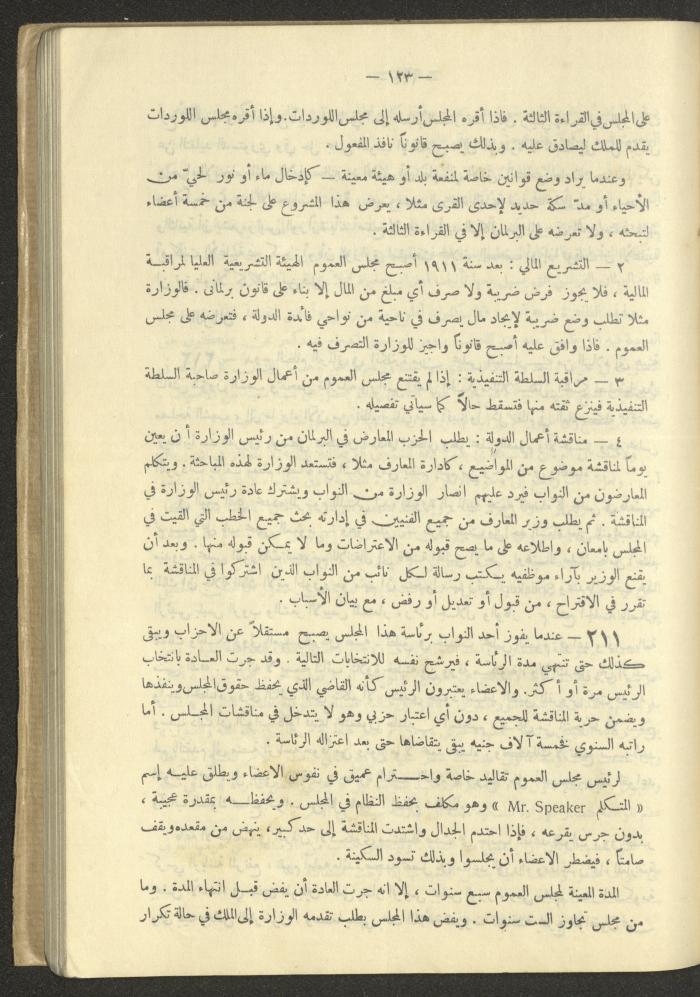 — ١٢٣ —
على المجلس في القراءة الثالثة . فاذا أقره المجلس أرسله إلى مجلس اللوردات . وإذا أقره مجلس اللوردات
يقدم للملك ليصادق عليه . وبذلك يصبح قانوناً نافذ المفعول .
وعندما يراد وضع قوانين خاصة لمنفعة بلد أو هيئة معينة — كإدخال ماء أو نور لحيّ من
الأحياء أو مدّ سكة حديد لإحدى القرى مثلا ، يعرض هذا المشروع على لجنة من خمسة أعضاء
لتبحثه ، ولا تعرضه على البرلمان إلا في القراءة الثالثة .
٢ — التشريع المالي : بعد سنة ١٩١١ أصبح مجلس العموم الهيئة التشريعية العليا لمراقبة
المالية ، فلا يجوز فرض ضريبة ولا صرف أي مبلغ من المال إلا بناء على قانون برلمانى . فالوزارة
مثلا تطلب وضع ضريبة لإيجاد مال يصرف في ناحية من نواحي فائدة الدولة ، فتعرضه على مجلس
العموم . فاذا وافق عليه أصبح قانوناً واجيز للوزارة التصرف فيه .
٣ — مراقبة السلطة التنفيذية : إذا لم يقتنع مجلس العموم من أعمال الوزارة صاحبة السلطة
التنفيذية فينزع ثقته منها فتسقط حالاً كما سياتي تفصيله .
٤ — مناقشة أعمال الدولة : يطلب الحزب المعارض في البرلمان من رئيس الوزارة أن يعين
يوماً لمناقشة موضوع من المواضيع ، كادارة المعارف مثلا ، فتستعد الوزارة لهذه المباحثة . ويتكلم
المعارضون من النواب فيرد عليهم انصار الوزارة من النواب ويشترك عادة رئيس الوزارة في
المناقشة . ثم يطلب وزير المعارف من جميع الفنيين في إدارته بحث جميع الخطب التي القيت في
المجلس بامعان ، واطلاعه على ما يصح قبوله من الاعتراضات وما لا يمكن قبوله منها . وبعد أن
يقنع الوزير بآراء موظفيه يكتب رسالة لكل نائب من النواب الذين اشتركوا في المناقشة بما
تقرر في الاقتراح ، من قبول أو تعديل أو رفض ، مع بيان الأسباب .
٢١١ — عندما يفوز أحد النواب برئاسة هذا المجلس يصبح مستقلاً عن الاحزاب ويبقى
كذلك حتى تنتهي مدة الرئاسة ، فيرشح نفسه للانتخابات التالية . وقد جرت العادة بانتخاب
الرئيس مرة أو أكثر . والاعضاء يعتبرون الرئيس كأنه القاضي الذي يحفظ حقوق المجلس وينفذها
ويضمن حرية المناقشة للجميع ، دون أي اعتبار حزبي وهو لا يتدخل في مناقشات المجلس . أما
راتبه السنوي فخمسة آلاف جنيه يبقى يتقاضاها حتى بعد اعتزاله الرئاسة .
لرئيس مجلس العموم تقاليد خاصة واحترام عميق في نفوس الاعضاء ويطلق عليه إسم
« المتكلم Mr. Speaker » وهو مكلف بحفظ النظام في المجلس . ويحفظه بمقدرة عجيبة ،
بدون جرس يقرعه ، فإذا احتدم الجدال واشتدت المناقشة إلى حد كبير ، ينهض من مقعده ويقف
صامتاً ، فيضطر الاعضاء أن يجلسوا وبذلك تسود السكينة .
المدة المعينة لمجلس العموم سبع سنوات ، إلا انه جرت العادة أن يفض قبل انتهاء المدة . وما
من مجلس تجاوز الست سنوات . ويفض هذا المجلس بطلب تقدمه الوزارة إلى الملك في حالة تكرار